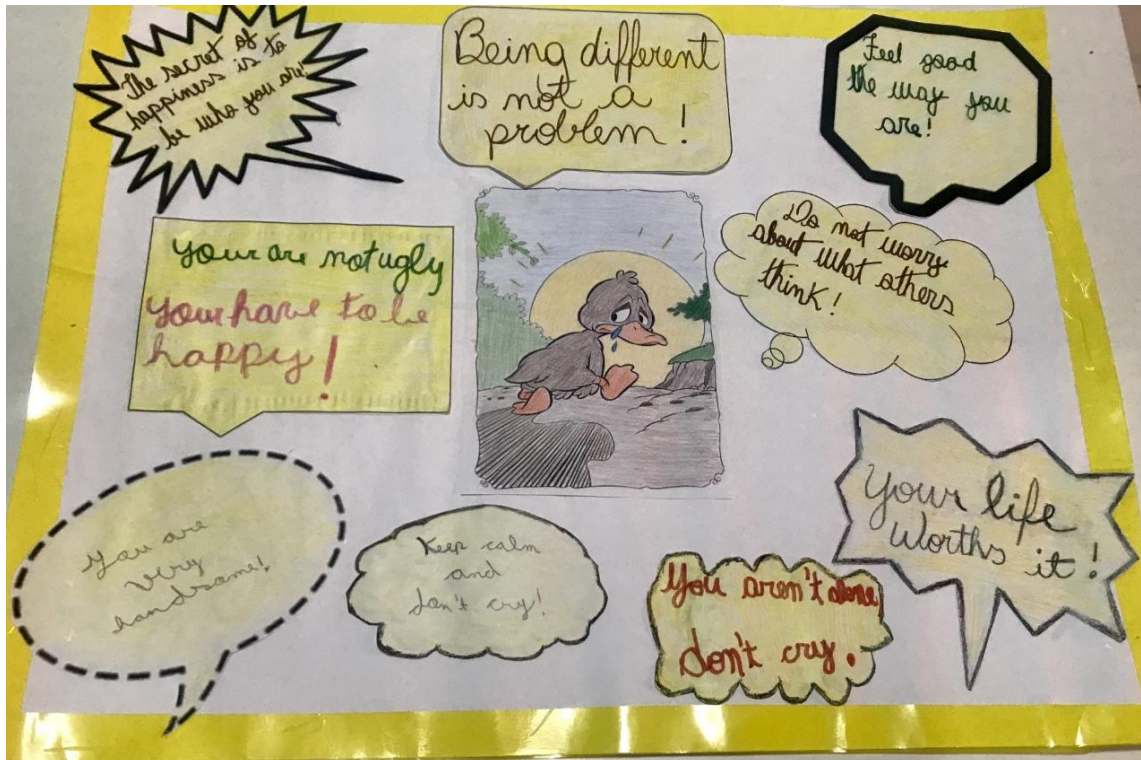 The secret of
happiness is to
be who you are!
Being different
is not a
problem!
Feel good
the way you
are!
your are not ugly
your have to be
happy!
Do not worry
about what others
think!
You are
very
handsome!
Keep calm
and
don't cry!
You aren't alone,
don't cry.
Your life
Worths it!